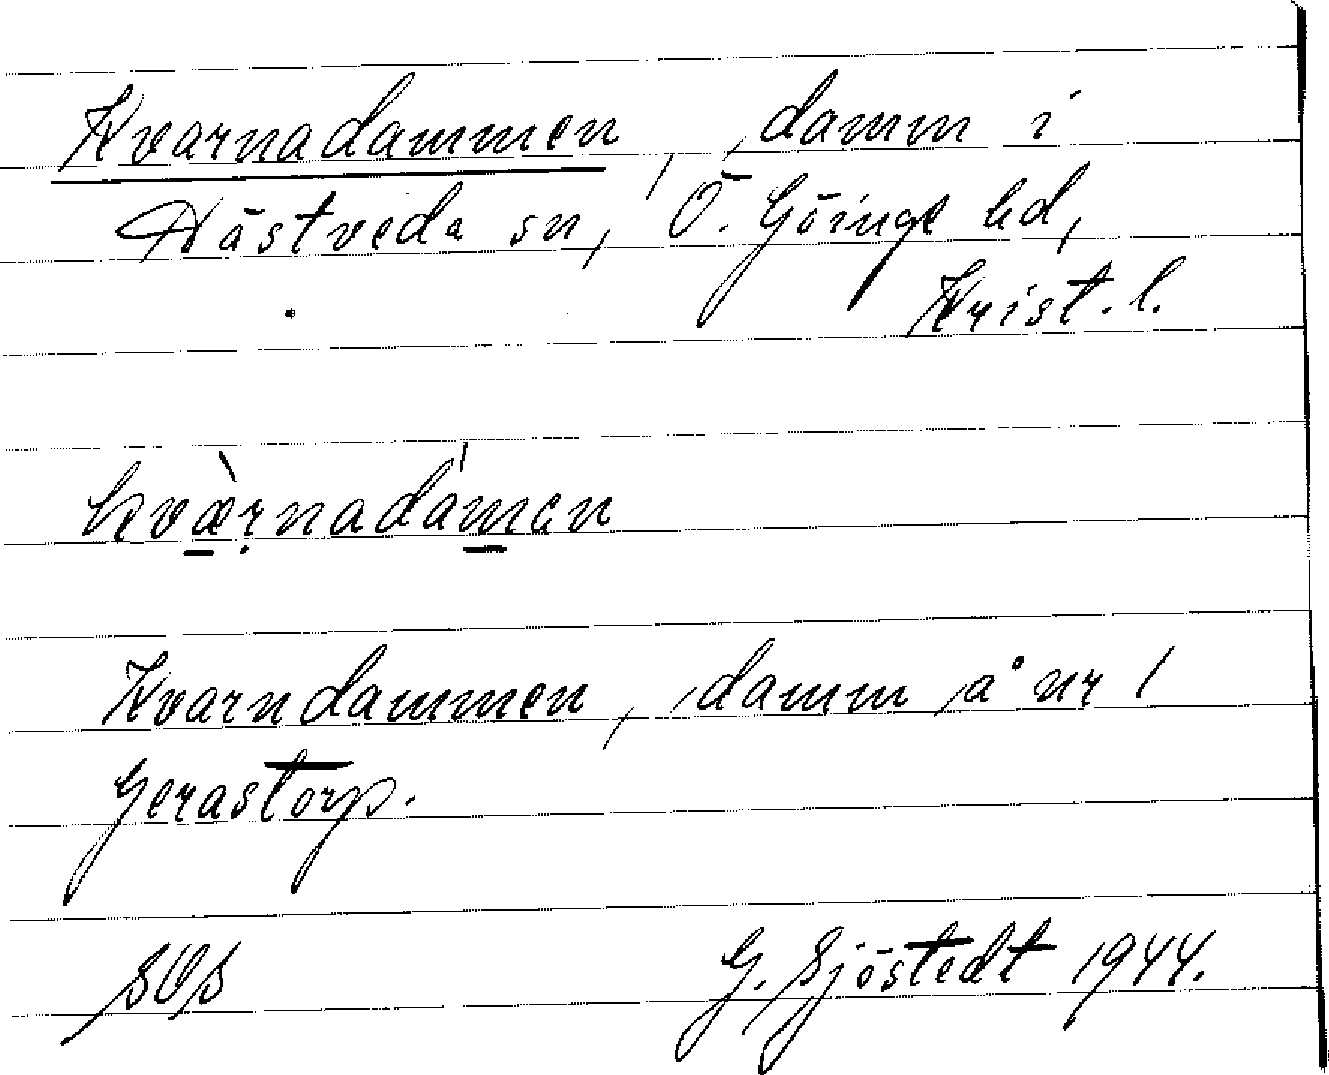 Kvarnadammen, damm i
Hästveda sn, Ö. Göinge hd,
Krist. l.
kvæ̀rnadámen
Kvarndammen, damm å nr 1
Gerastorp.
SOS G. Sjöstedt 1944.